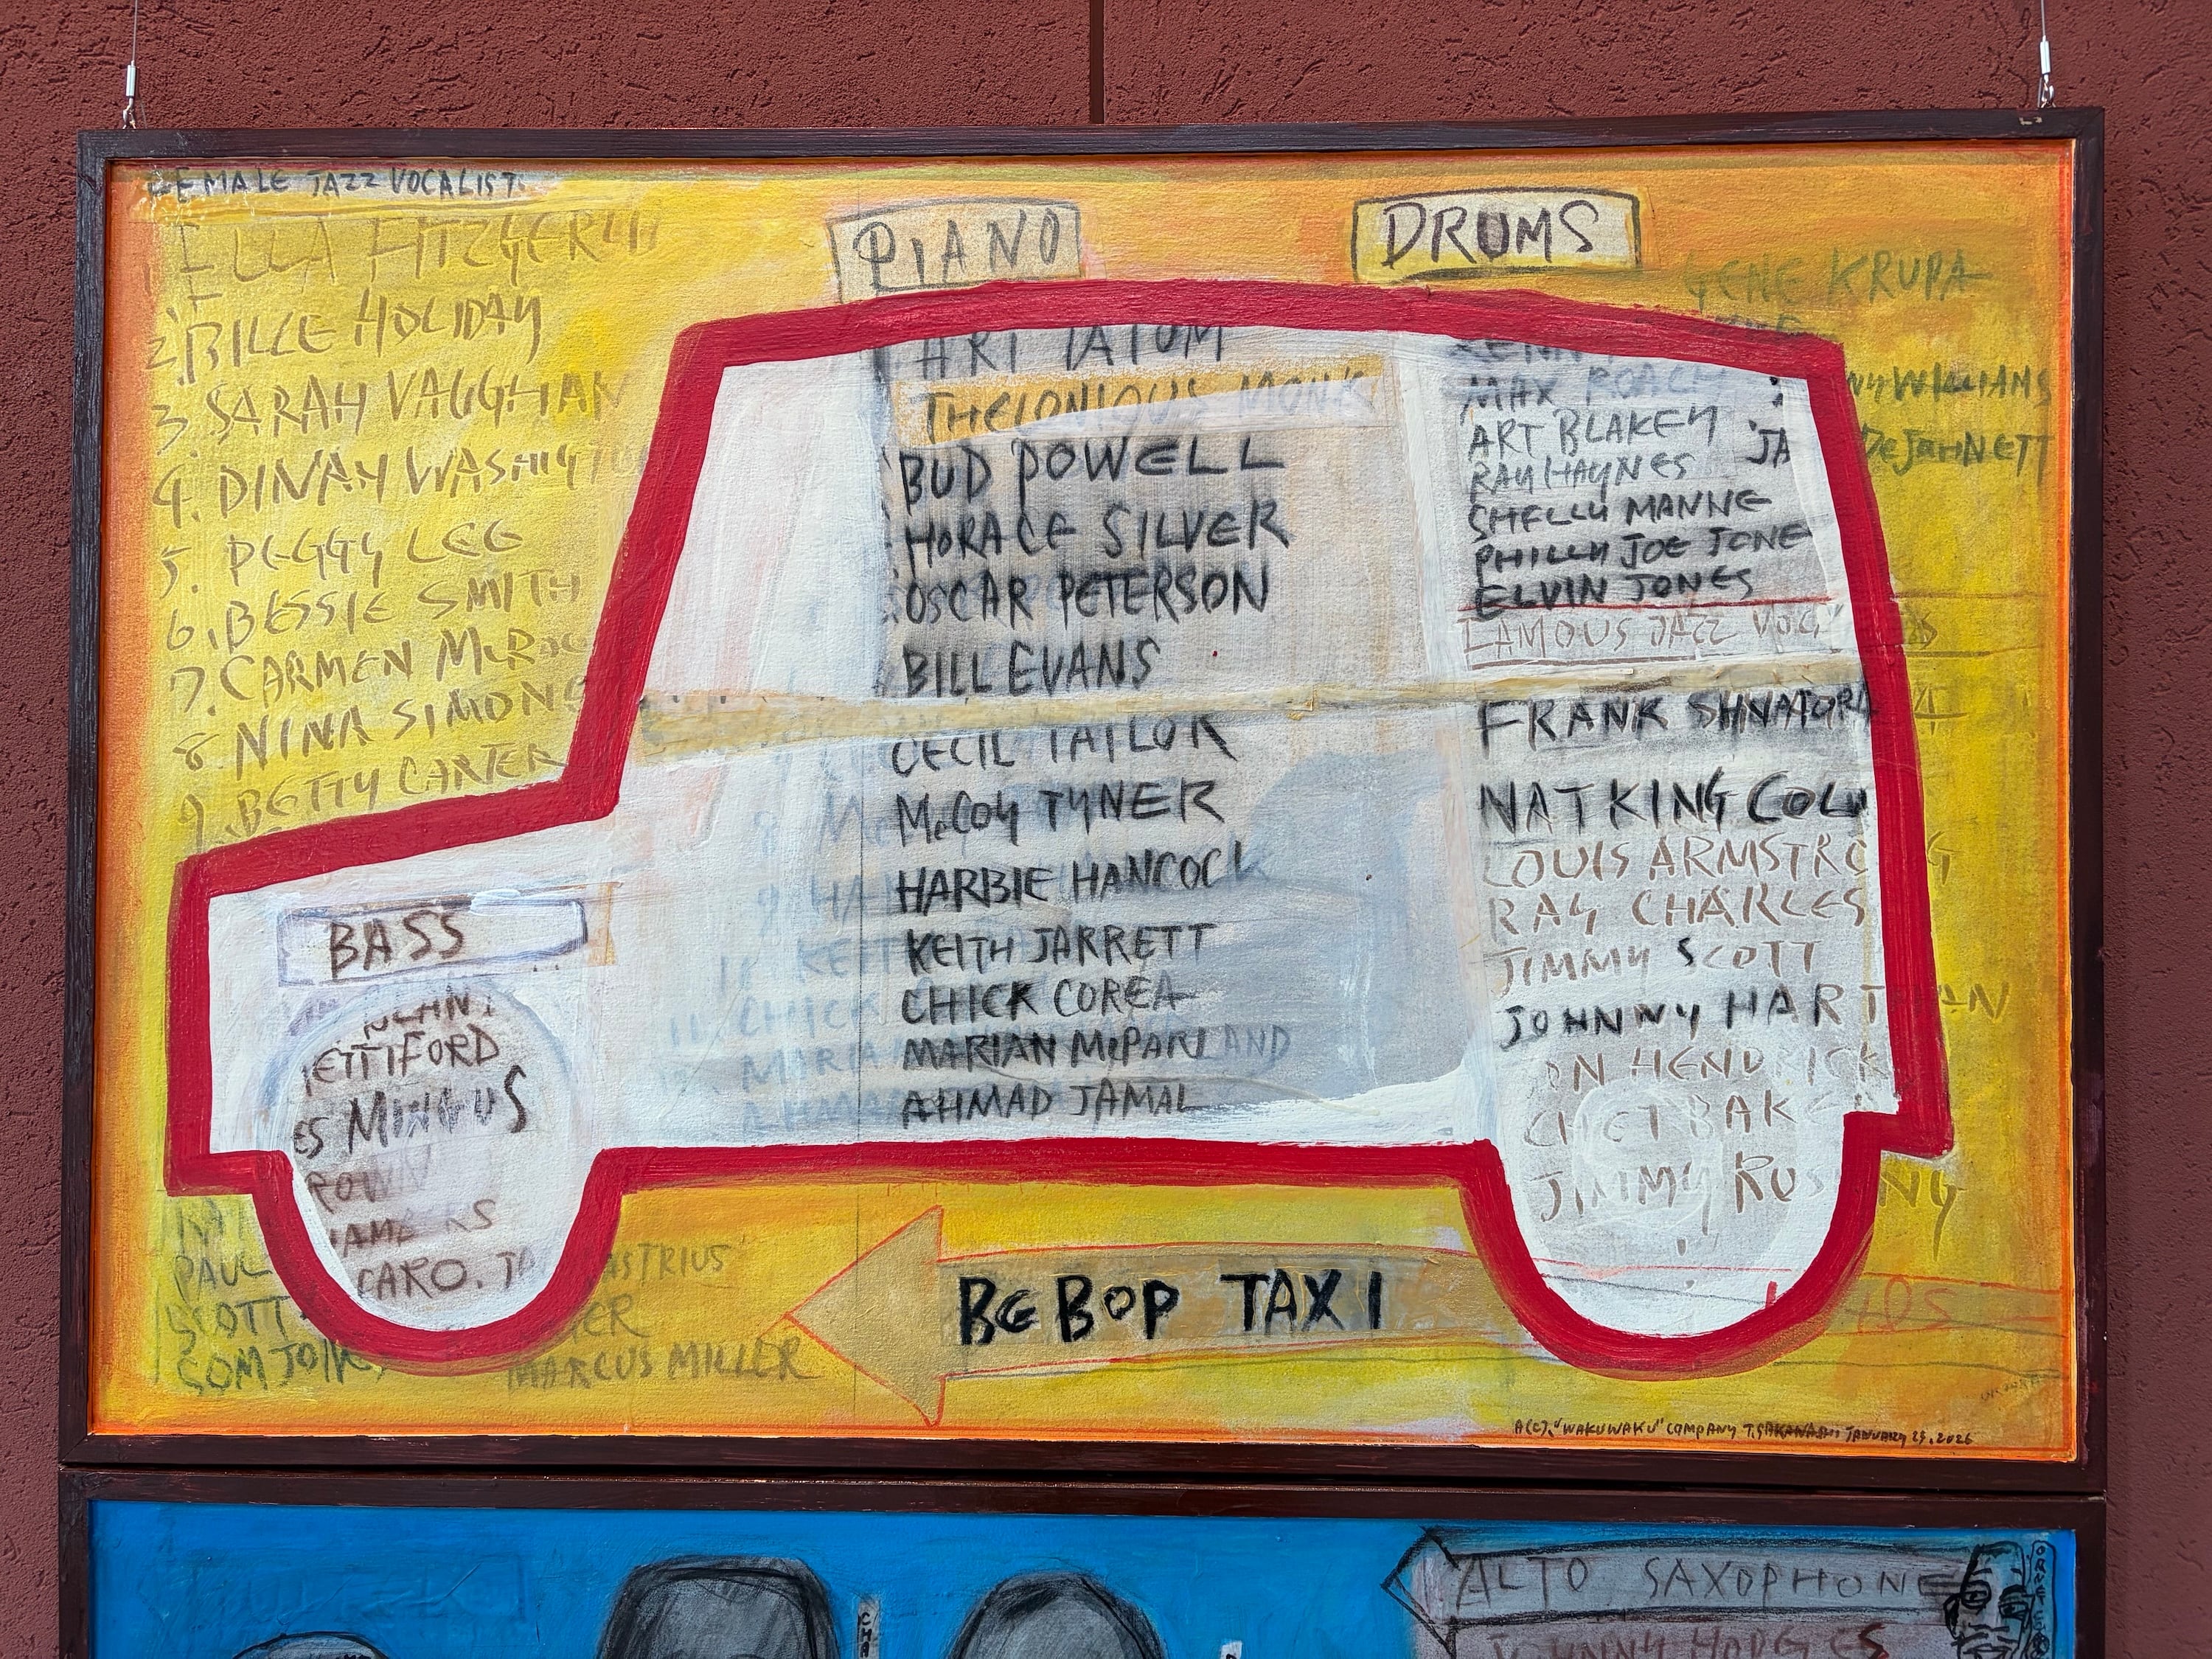 FEMALE JAZZ VOCALIST
ELLA FITZGERLD
2. BILLE HOLIDAY
3. SARAH VAUGHAN
4. DINAH WASHING
5. PEGGY LEE
6. BESSIE SMITH
7. CARMEN McRae
8. NINA SIMONE
9. BETTY CARTER
PIANO
ART TATUM
THELONIOUS MONK
BUD POWELL
HORACE SILVER
OSCAR PETERSON
BILL EVANS
CECIL TAYLOR
McCoy TYNER
HARBIE HANCOCK
KEITH JARRETT
CHICK COREA
MARIAN McPARLAND
AHMAD JAMAL
DRUMS
GENE KRUPA
MAX ROACH
NY WILLIAMS
ART BLAKEY
JA DeJOHNETT
RAY HAYNES
SHELLY MANNE
PHILLY JOE JONE
ELVIN JONES
FAMOUS JAZZ
FRANK SHNATORA
NAT KING COL
LOUIS ARMSTRONG
RAY CHARLES
JIMMY SCOTT
JOHNNY HARTMAN
ON HENDRICK
CHET BAKE
JIMMY RUS NY
BASS
ETTIFORD
ES MINGUS
ROWN
AMBERS
PAUL
CARO. JA ASTRIUS
SCOTT
COM JONES
MARCUS MILLER
BEBOP TAXI
A(C). "WAKUWAKU" COMPANY T.SAKANASHI JANUARY 29. 2026
ALTO SAXOPHONE
JOHNNY HODGES